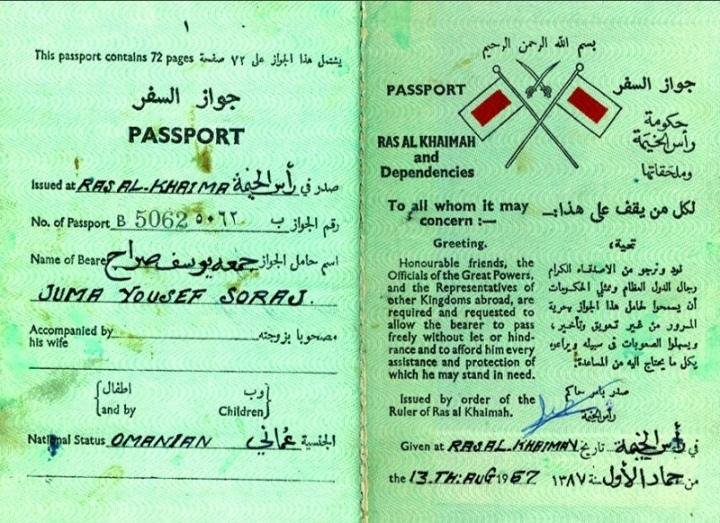 ١
This passport contains 72 pages يشتمل هذا الجواز على ٧٢ صفحة
جواز السفر
PASSPORT
Issued at RAS AL-KHAIMA صدر في رأس الخيمة
No. of Passport B 5062 رقم الجواز ب ٥٠٦٢
Name of Bearer اسم حامل الجواز جمعه يوسف صراج
JUMA YOUSEF SORAJ.
Accompanied by مصحوبا بزوجته
his wife
اطفال وب
and by Children
National Status OMANIAN الجنسية عماني
بسم الله الرحمن الرحيم
PASSPORT جواز السفر
RAS AL KHAIMAH
and
Dependencies
حكومة
رأس الخيمة
وملحقاتها
To all whom it may
concern :—
لكل من يقف على هذا:—
Greeting.
Honourable friends, the
Officials of the Great Powers,
and the Representatives of
other Kingdoms abroad, are
required and requested to
allow the bearer to pass
freely without let or hind-
rance and to afford him every
assistance and protection of
which he may stand in need.
تحية،
نود ونرجو من الاصدقاء الكرام
رجال الدول العظام وممثلي الحكومات
ان يسمحوا لحامل هذا الجواز بحرية
المرور من غير تعويق وتأخير،
ويسهلوا الصعوبات في سبيله ويراعوه
بكل ما يحتاج اليه من المساعدة.
Issued by order of the
Ruler of Ras al Khaimah.
صدر بامر حاكم
رأس الخيمة
Given at RAS AL. KHAIMAH في رأس الخيمة تاريخ
the 13.TH: AUG 1967 من جماد الأول سنة ١٣٨٧